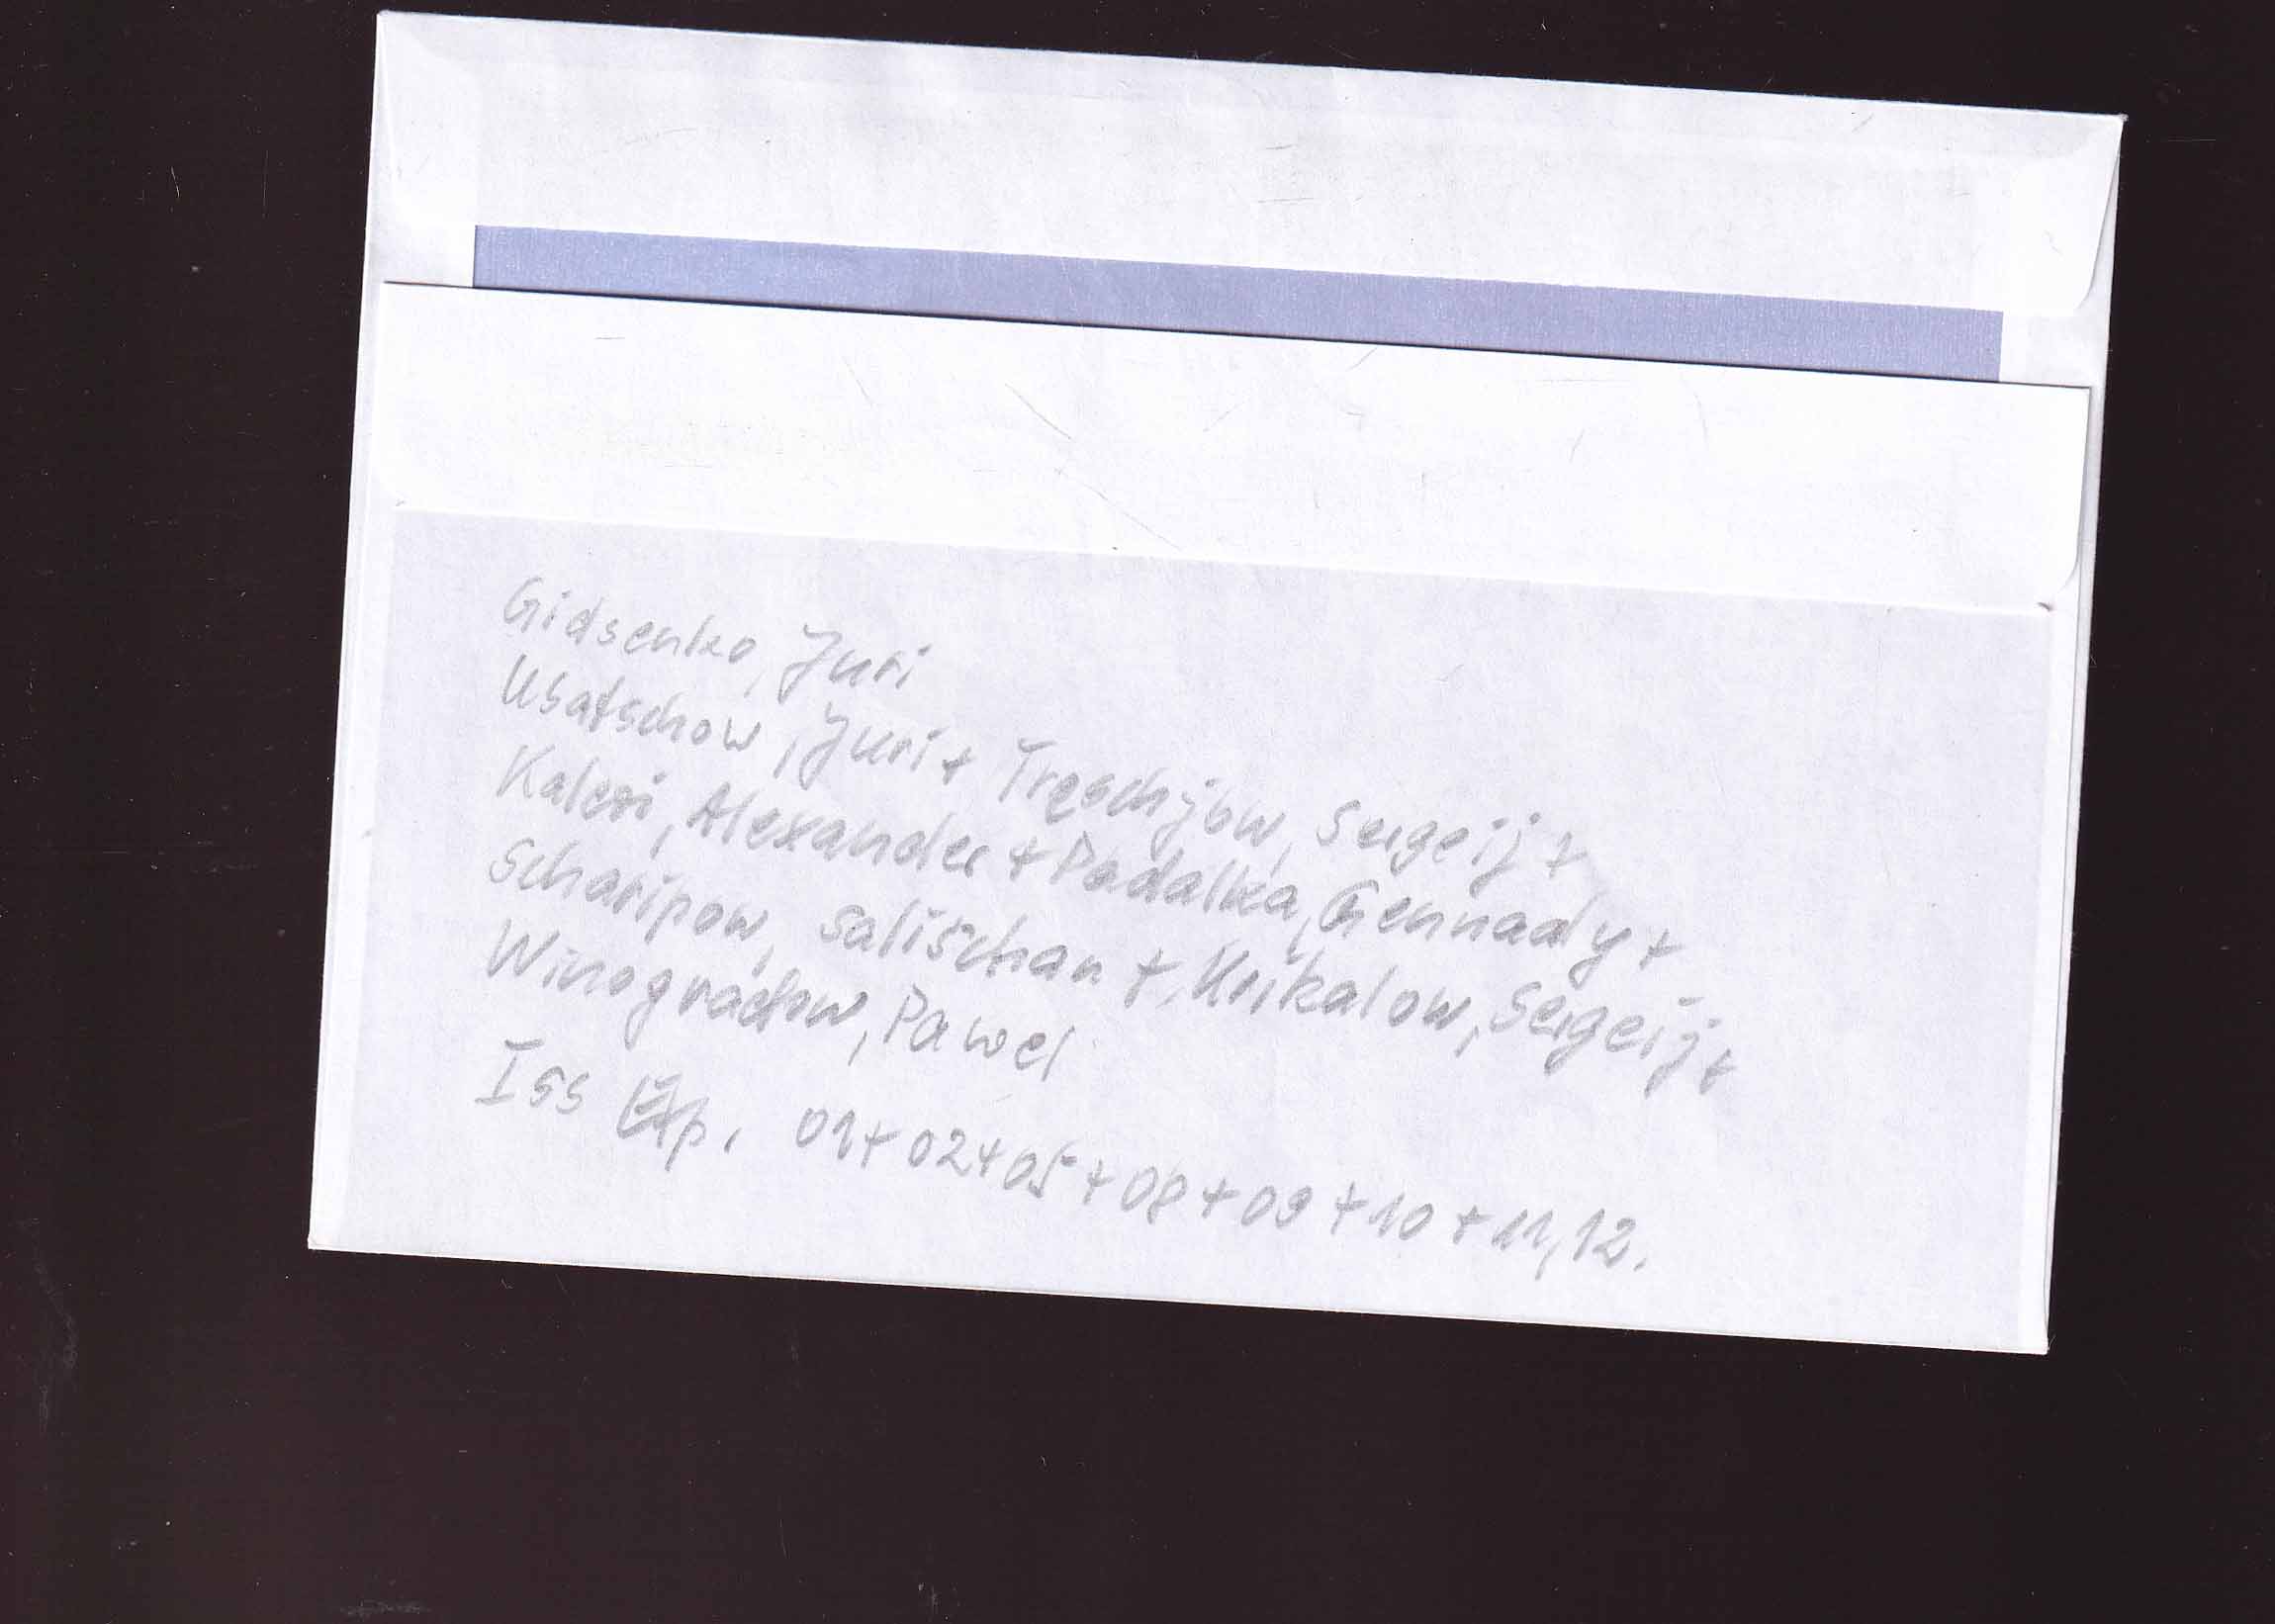 Gidsenko, Juri
Usatschow, Juri + Treschjow, Sergeij +
Kaleri, Alexander + Padalka, Gennady +
Scharipow, Salischan +, Krikalow, Sergeij +
Winogradow, Pawel
Iss Exp. 01+02+05+08+09+10+11,12.